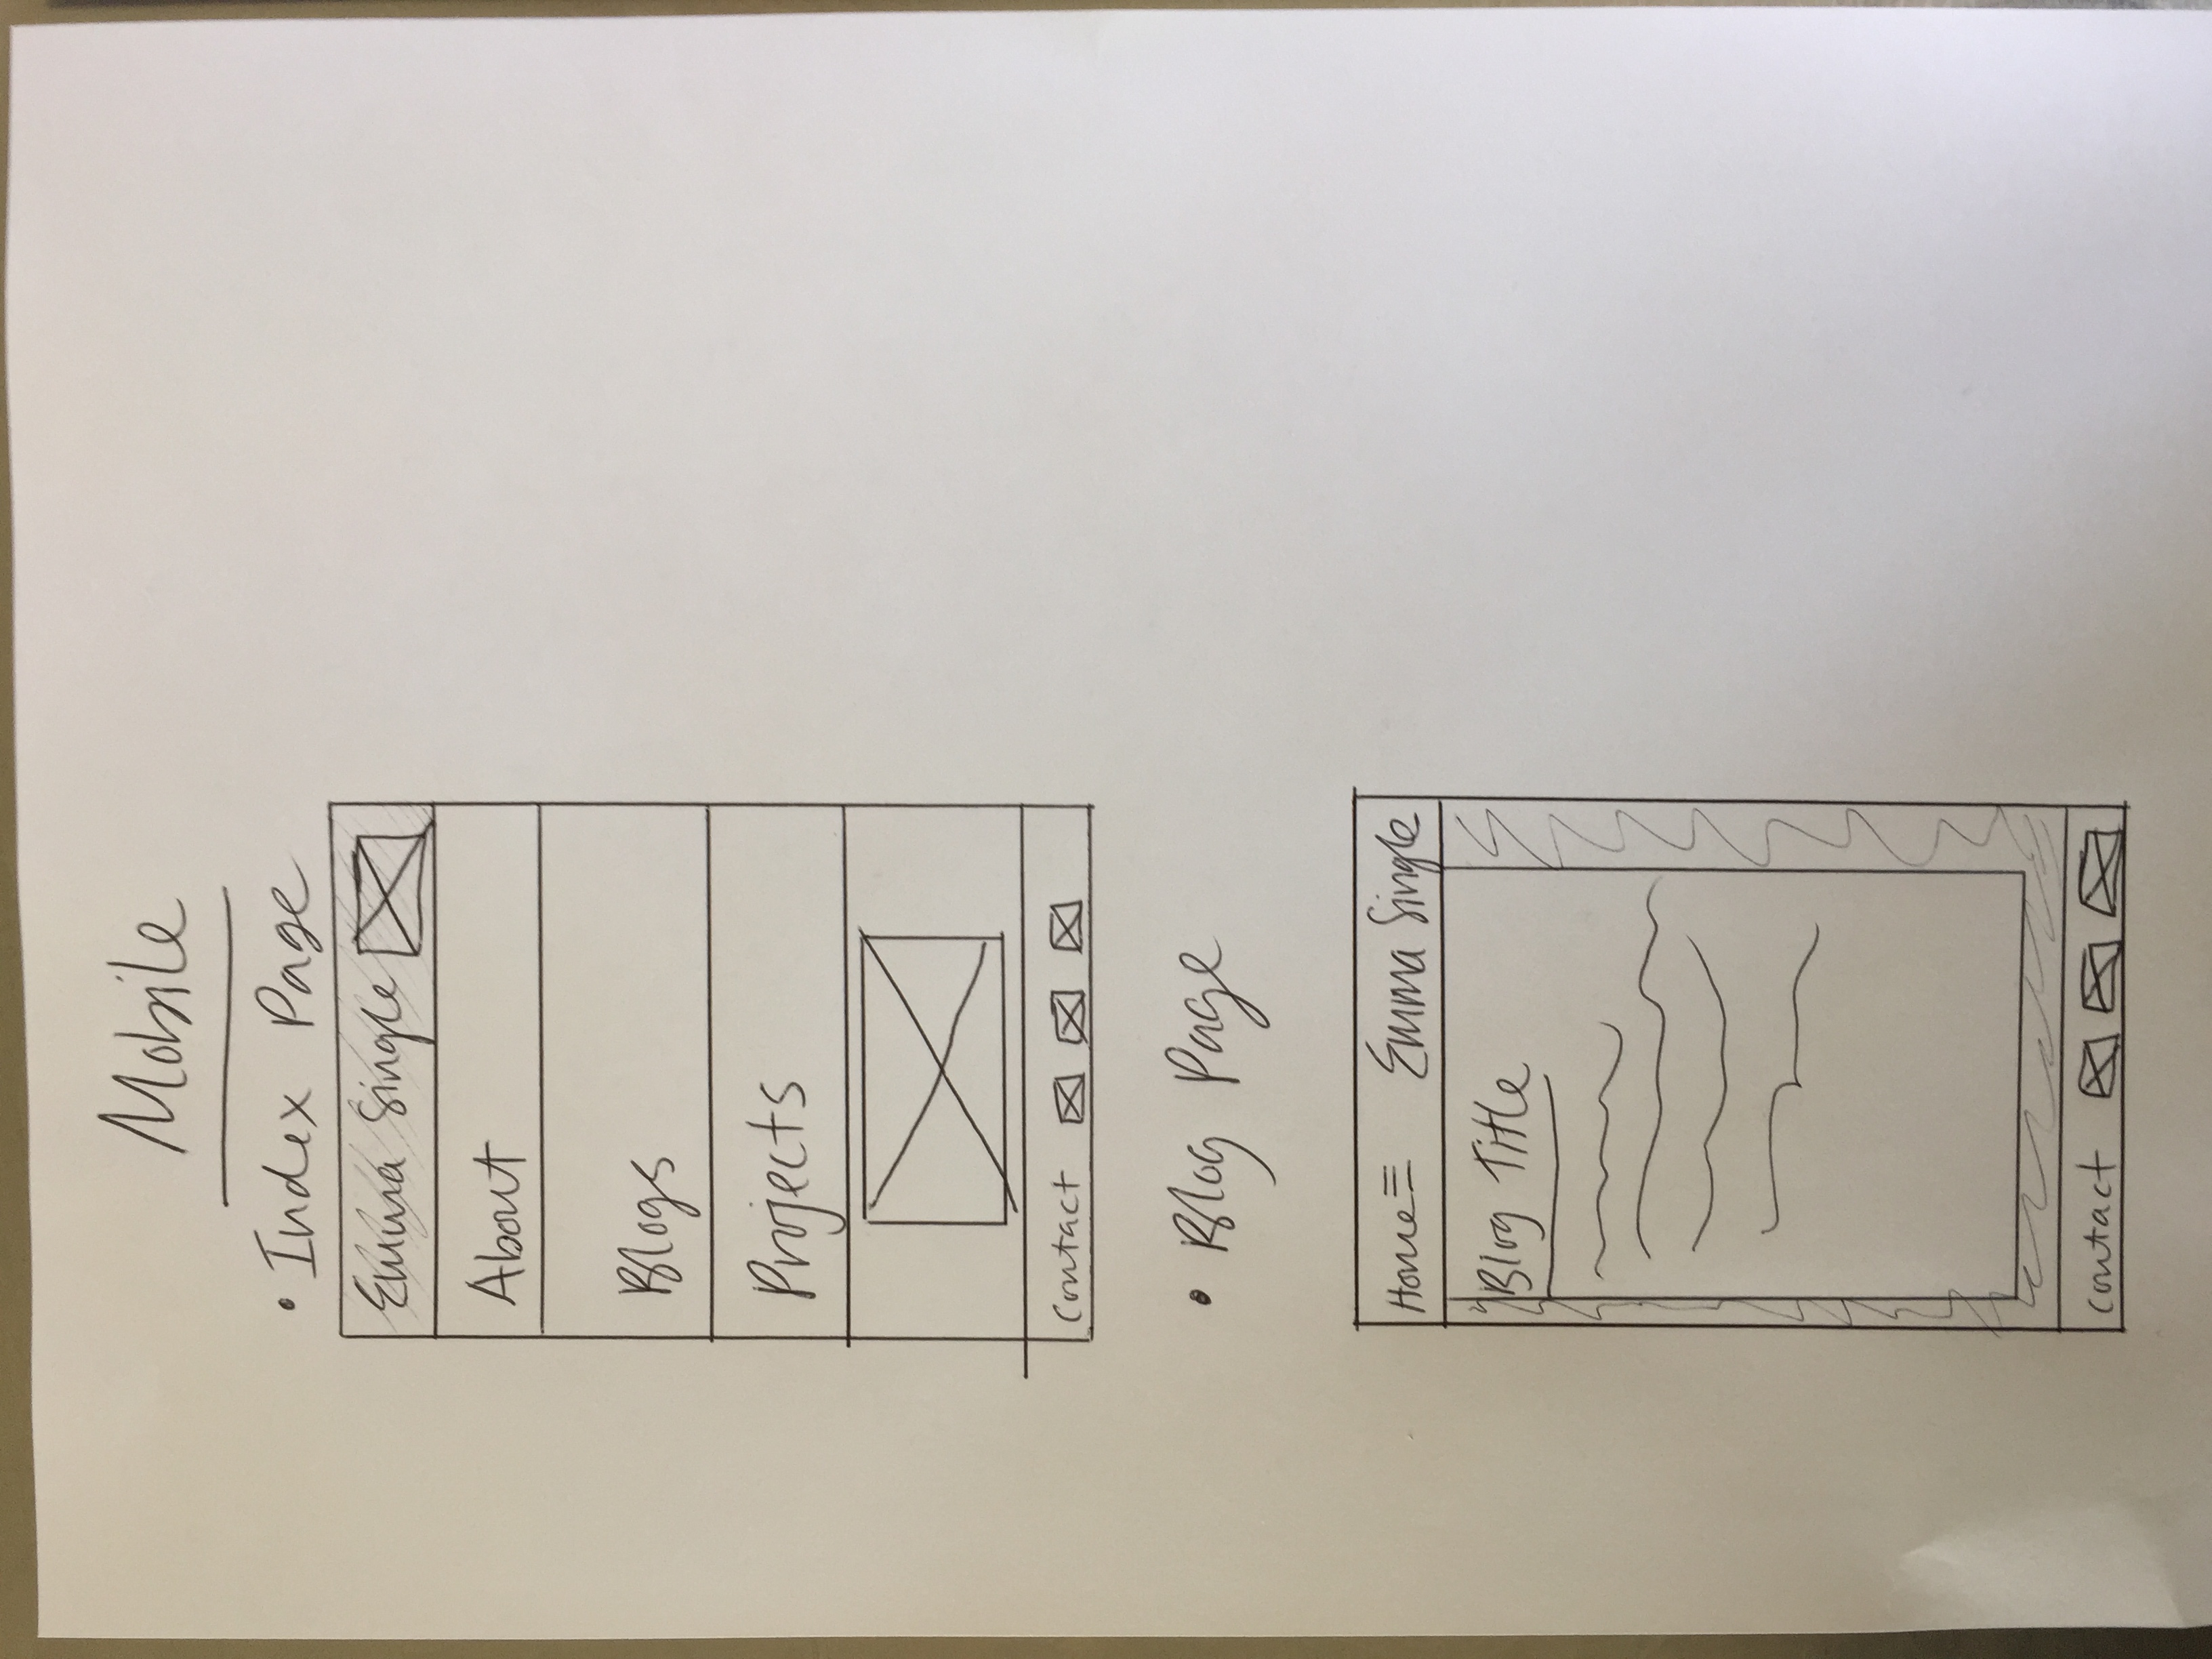 Mobile
• Index Page
Emma Single
About
Blogs
Projects
Contact
• Blog Page
Home Emma Single
Blog Title
Contact